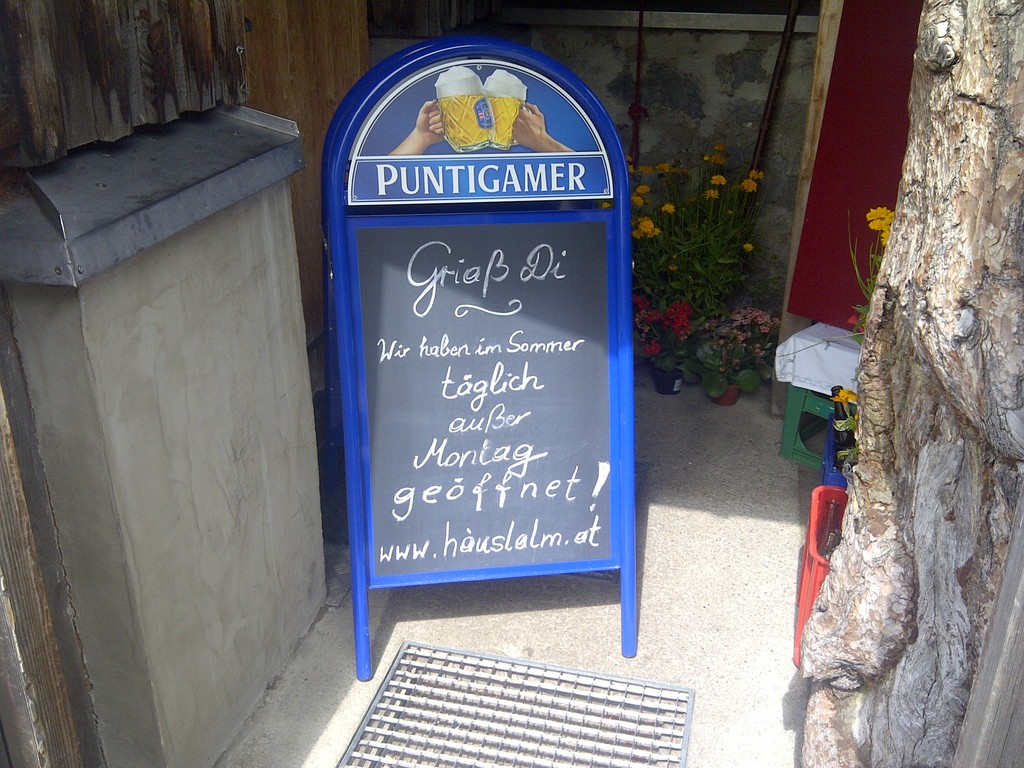 PUNTIGAMER
Griaß Di
Wir haben im Sommer
täglich
außer
Montag
geöffnet!
www.häuslalm.at